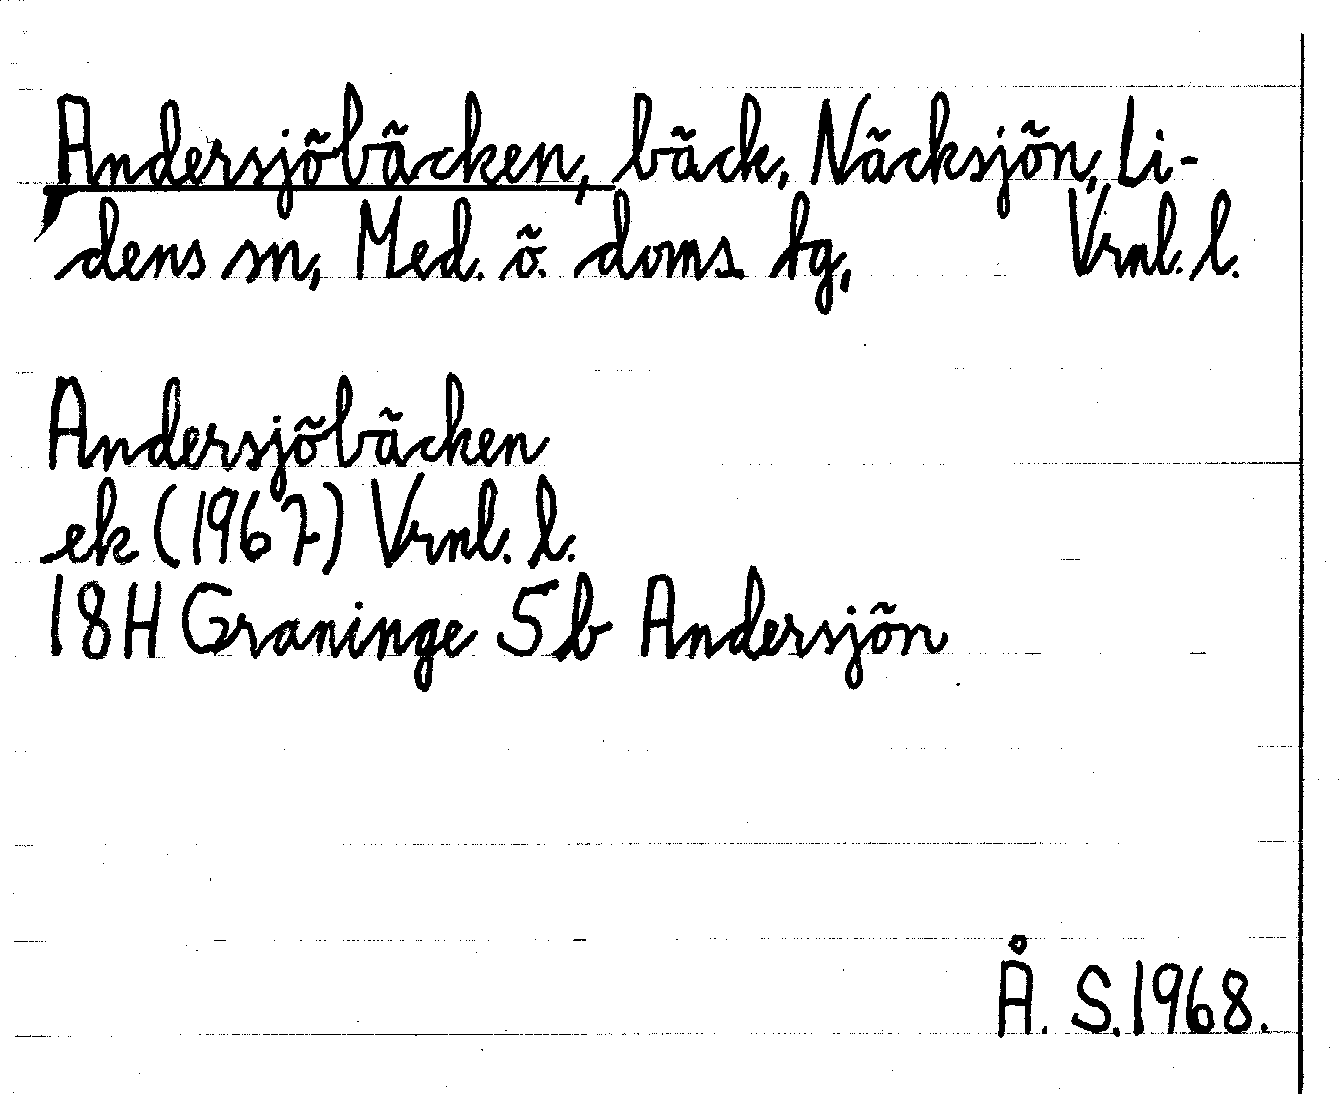 Andersjöbäcken, bäck, Näcksjön, Li-
dens sn, Med. ö. doms. tg, Vrnl. l.
Andersjöbäcken
ek (1967) Vrnl. l.
18H Graninge 5b Andersjön
Å. S. 1968.